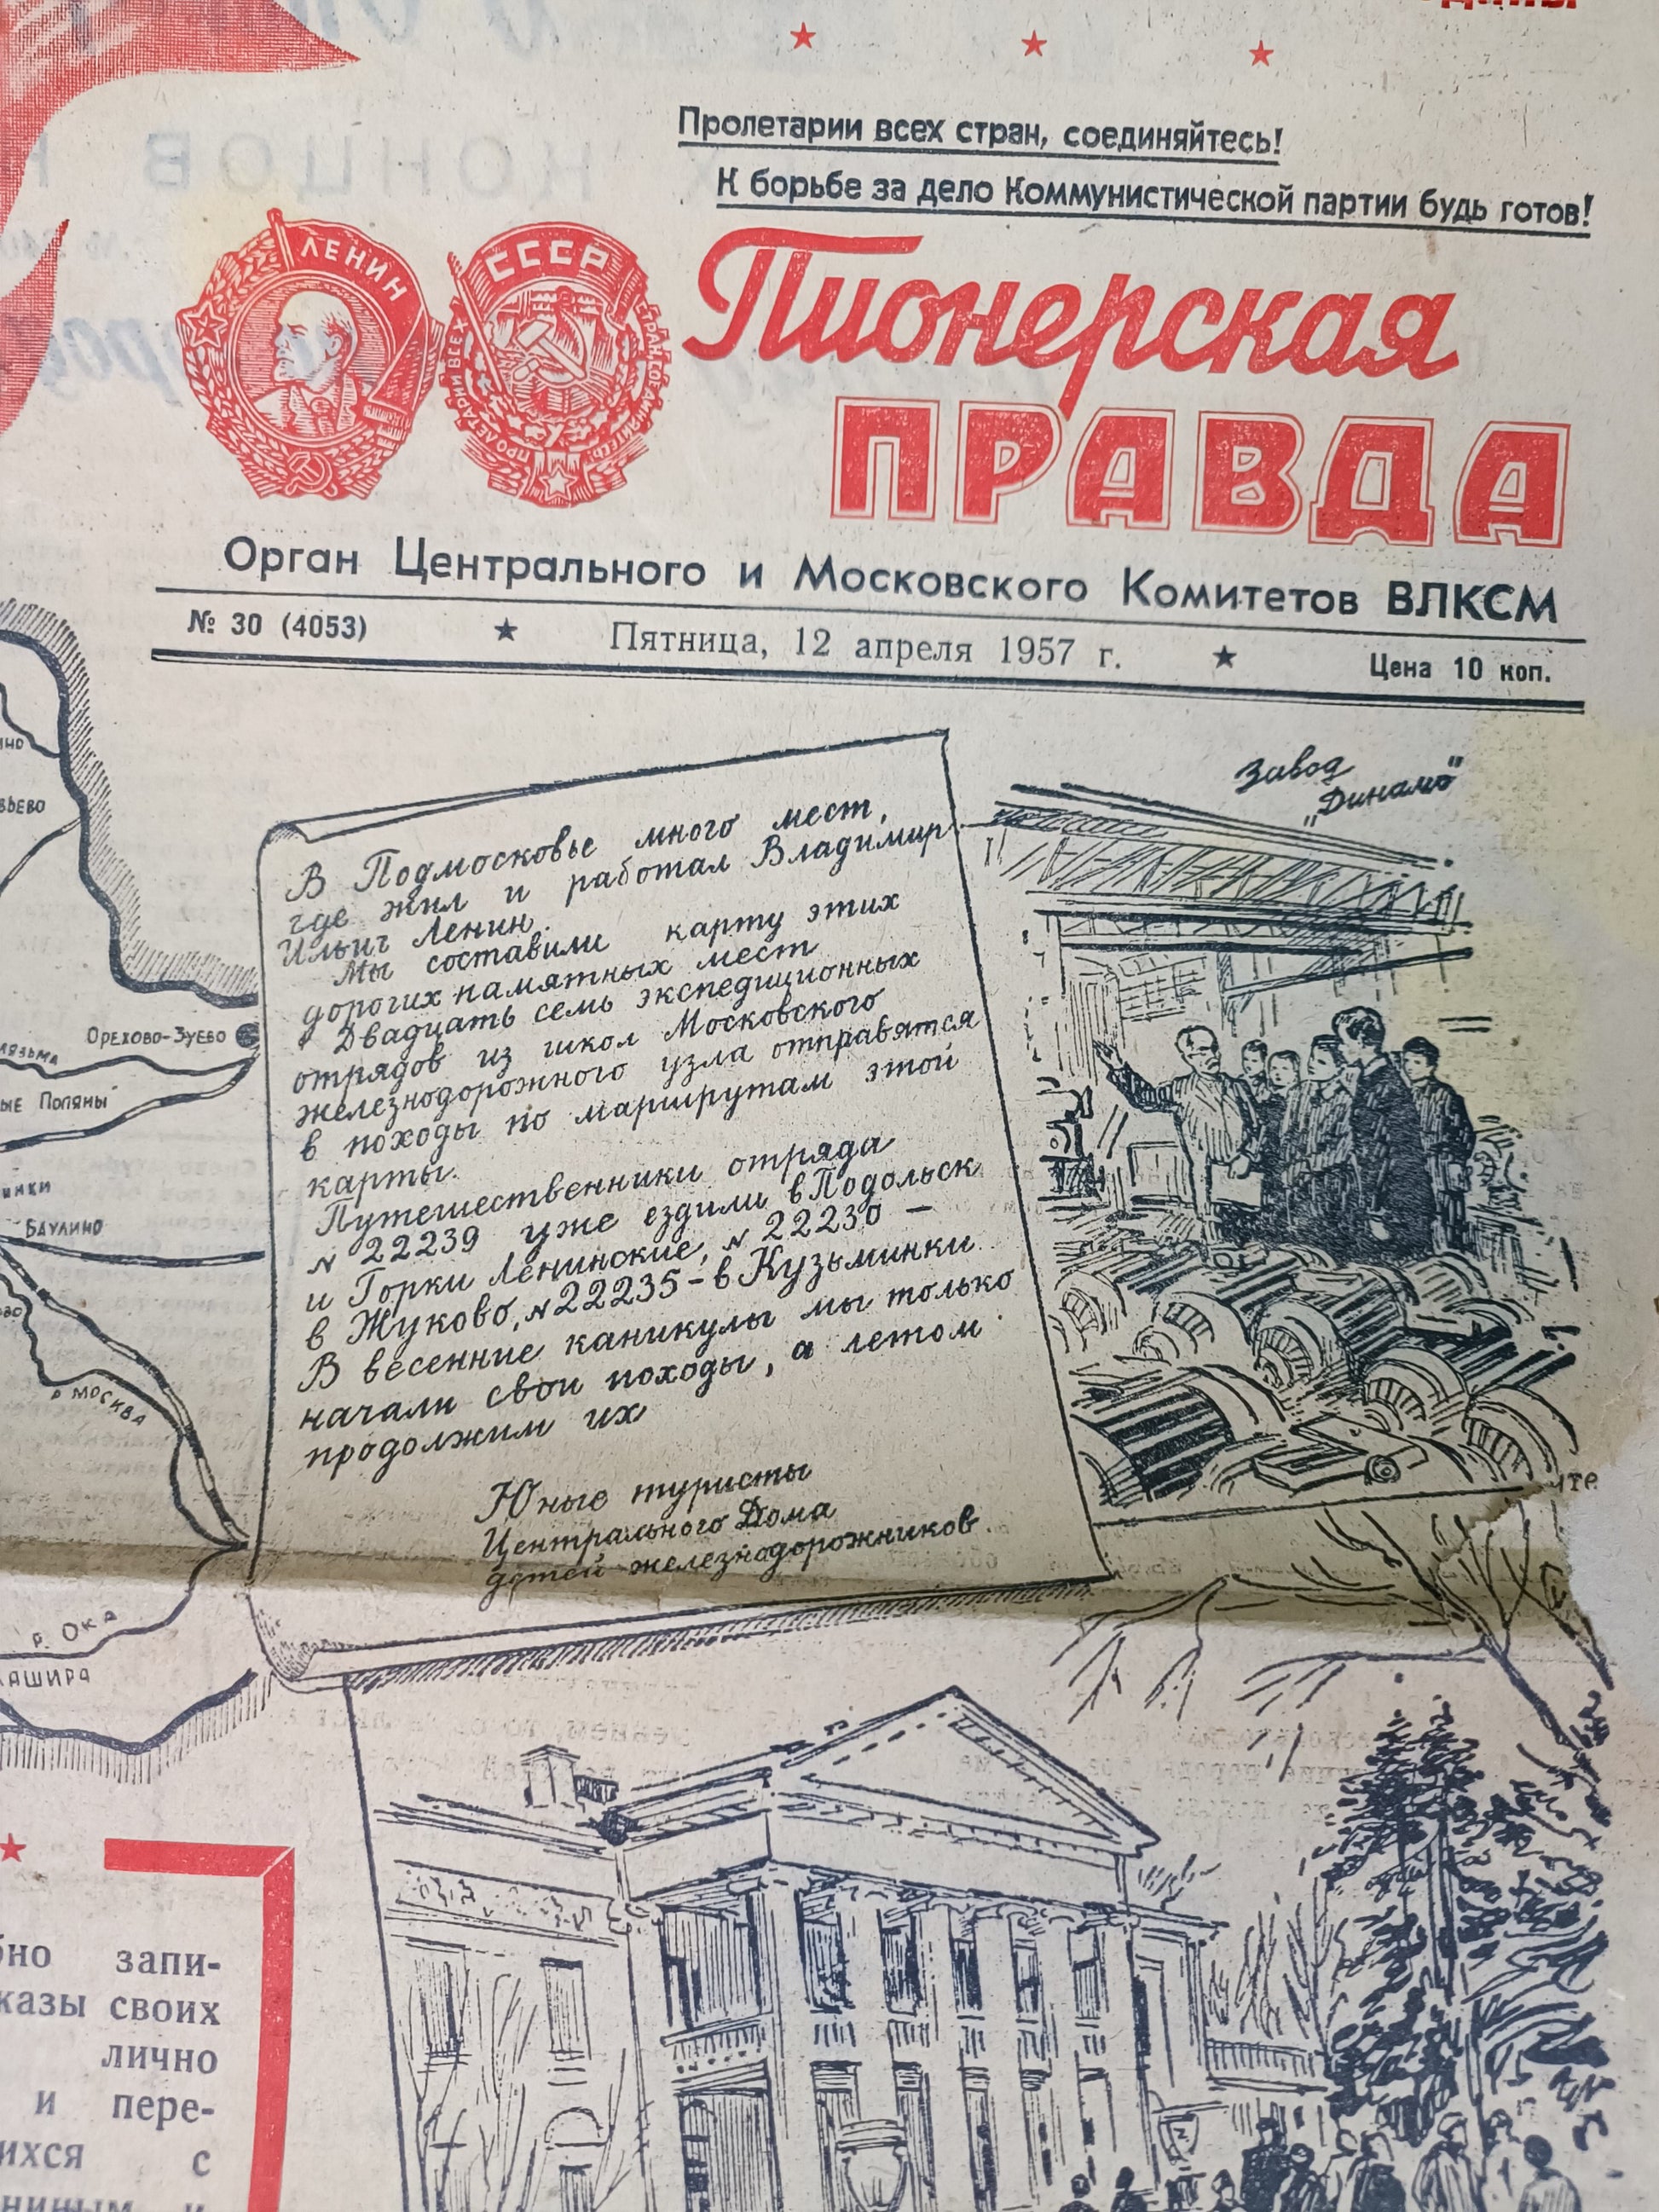 Пролетарии всех стран, соединяйтесь!
К борьбе за дело Коммунистической партии будь готов!
ЛЕНИН
СССР
ПРОЛЕТАРИИ ВСЕХ СТРАН СОЕДИНЯЙТЕСЬ!
Пионерская
ПРАВДА
Орган Центрального и Московского Комитетов ВЛКСМ
№ 30 (4053) ★ Пятница, 12 апреля 1957 г. ★ Цена 10 коп.
Завод
„Динамо"
В Подмосковье много мест,
где жил и работал Владимир
Ильич Ленин.
Мы составили карту этих
дорогих памятных мест
Двадцать семь экспедиционных
отрядов из школ Московского
железнодорожного узла отправятся
в походы по маршрутам этой
карты.
Путешественники отряда
№ 22239 уже ездили в Подольск
и Горки Ленинские, № 22230 –
в Жуково, № 22235 – в Кузьминки.
В весенние каникулы мы только
начали свои походы, а летом
продолжим их
Юные туристы
Центрального Дома
детей железнодорожников.
ОРЕХОВО-ЗУЕВО
ЫЕ ПОЛЯНЫ
БАУЛИНО
р. МОСКВА
р. ОКА
АШИРА
запи-
казы своих
лично
и пере-
ихся с